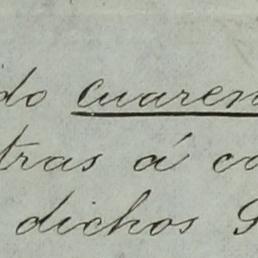 do cuaren
tras á co
dichos S